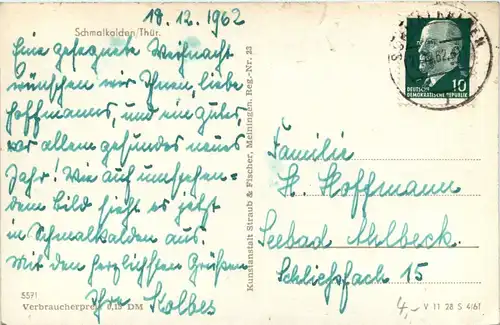 18.12.1962
Schmalkalden/Thür.
Eine gesegnete Weihnacht
wünschen wir Ihnen, liebe
Hoffmanns, und ein gutes
vor allem gesundes neues
Jahr! Wie auf umsehen=
dem Bild sieht es jetzt
in Schmalkalden aus.
Mit den herzlichsten Grüßen
Ihre Kolbes
5571
Verbraucherpreis 0,15 DM
Kunstanstalt Straub & Fischer, Meiningen, Reg.-Nr. 23
10
DEUTSCHE
DEMOKRATISCHE REPUBLIK
Familie
H. Hoffmann
Seebad Ahlbeck.
Schließfach 15
4,-
V 11 28 S 4161